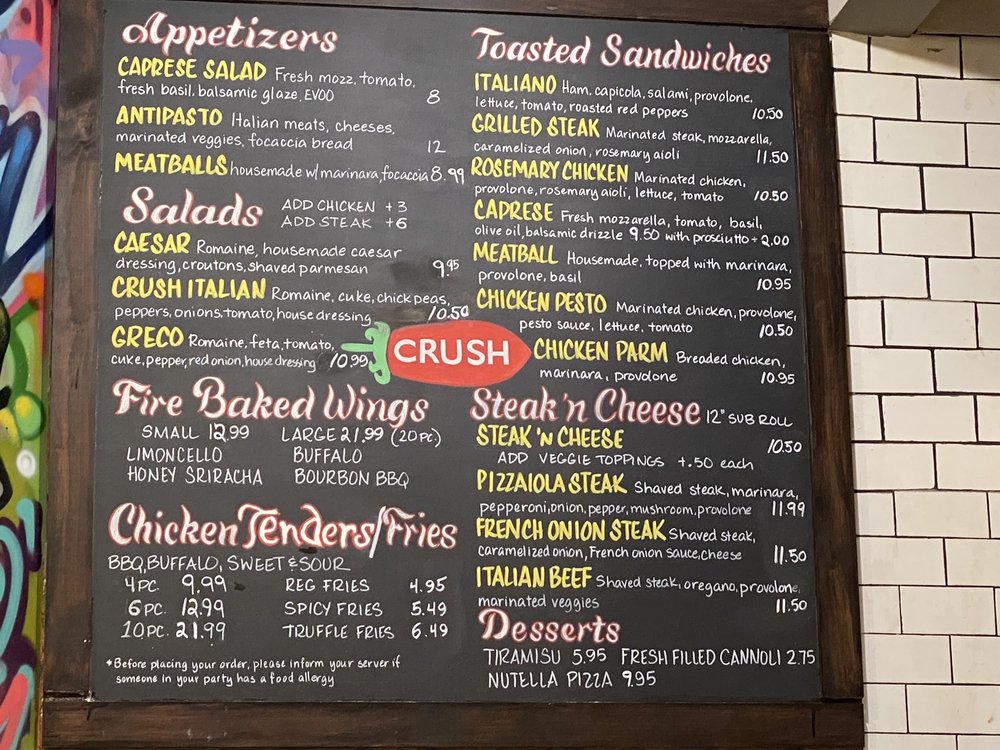 Appetizers
CAPRESE SALAD Fresh mozz, tomato,
fresh basil, balsamic glaze, EVOO 8
ANTIPASTO Italian meats, cheeses,
marinated veggies, focaccia bread 12
MEATBALLS housemade w/marinara, focaccia 8.99
Salads ADD CHICKEN +3
ADD STEAK +6
CAESAR Romaine, housemade caesar
dressing, croutons, shaved parmesan 9.95
CRUSH ITALIAN Romaine, cuke, chick peas,
peppers, onions, tomato, house dressing 10.50
GRECO Romaine, feta, tomato,
cuke, pepper, red onion, house dressing 10.99
Fire Baked Wings
SMALL 12.99 LARGE 21.99 (20 pc)
LIMONCELLO BUFFALO
HONEY SRIRACHA BOURBON BBQ
Chicken Tenders/Fries
BBQ, BUFFALO, SWEET & SOUR
4 PC. 9.99 REG FRIES 4.95
6 PC. 12.99 SPICY FRIES 5.49
10 PC. 21.99 TRUFFLE FRIES 6.49
*Before placing your order, please inform your server if
someone in your party has a food allergy
CRUSH
Toasted Sandwiches
ITALIANO Ham, capicola, salami, provolone,
lettuce, tomato, roasted red peppers 10.50
GRILLED STEAK Marinated steak, mozzarella,
caramelized onion, rosemary aioli 11.50
ROSEMARY CHICKEN Marinated chicken,
provolone, rosemary aioli, lettuce, tomato 10.50
CAPRESE Fresh mozzarella, tomato, basil,
olive oil, balsamic drizzle 9.50 with prosciutto + 2.00
MEATBALL Housemade, topped with marinara,
provolone, basil 10.95
CHICKEN PESTO Marinated chicken, provolone,
pesto sauce, lettuce, tomato 10.50
CHICKEN PARM Breaded chicken,
marinara, provolone 10.95
Steak 'n Cheese 12" SUB ROLL
STEAK 'N CHEESE 10.50
ADD VEGGIE TOPPINGS +.50 each
PIZZAIOLA STEAK Shaved steak, marinara,
pepperoni, onion, pepper, mushroom, provolone 11.99
FRENCH ONION STEAK Shaved steak,
caramelized onion, French onion sauce, cheese 11.50
ITALIAN BEEF Shaved steak, oregano, provolone,
marinated veggies 11.50
Desserts
TIRAMISU 5.95 FRESH FILLED CANNOLI 2.75
NUTELLA PIZZA 9.95